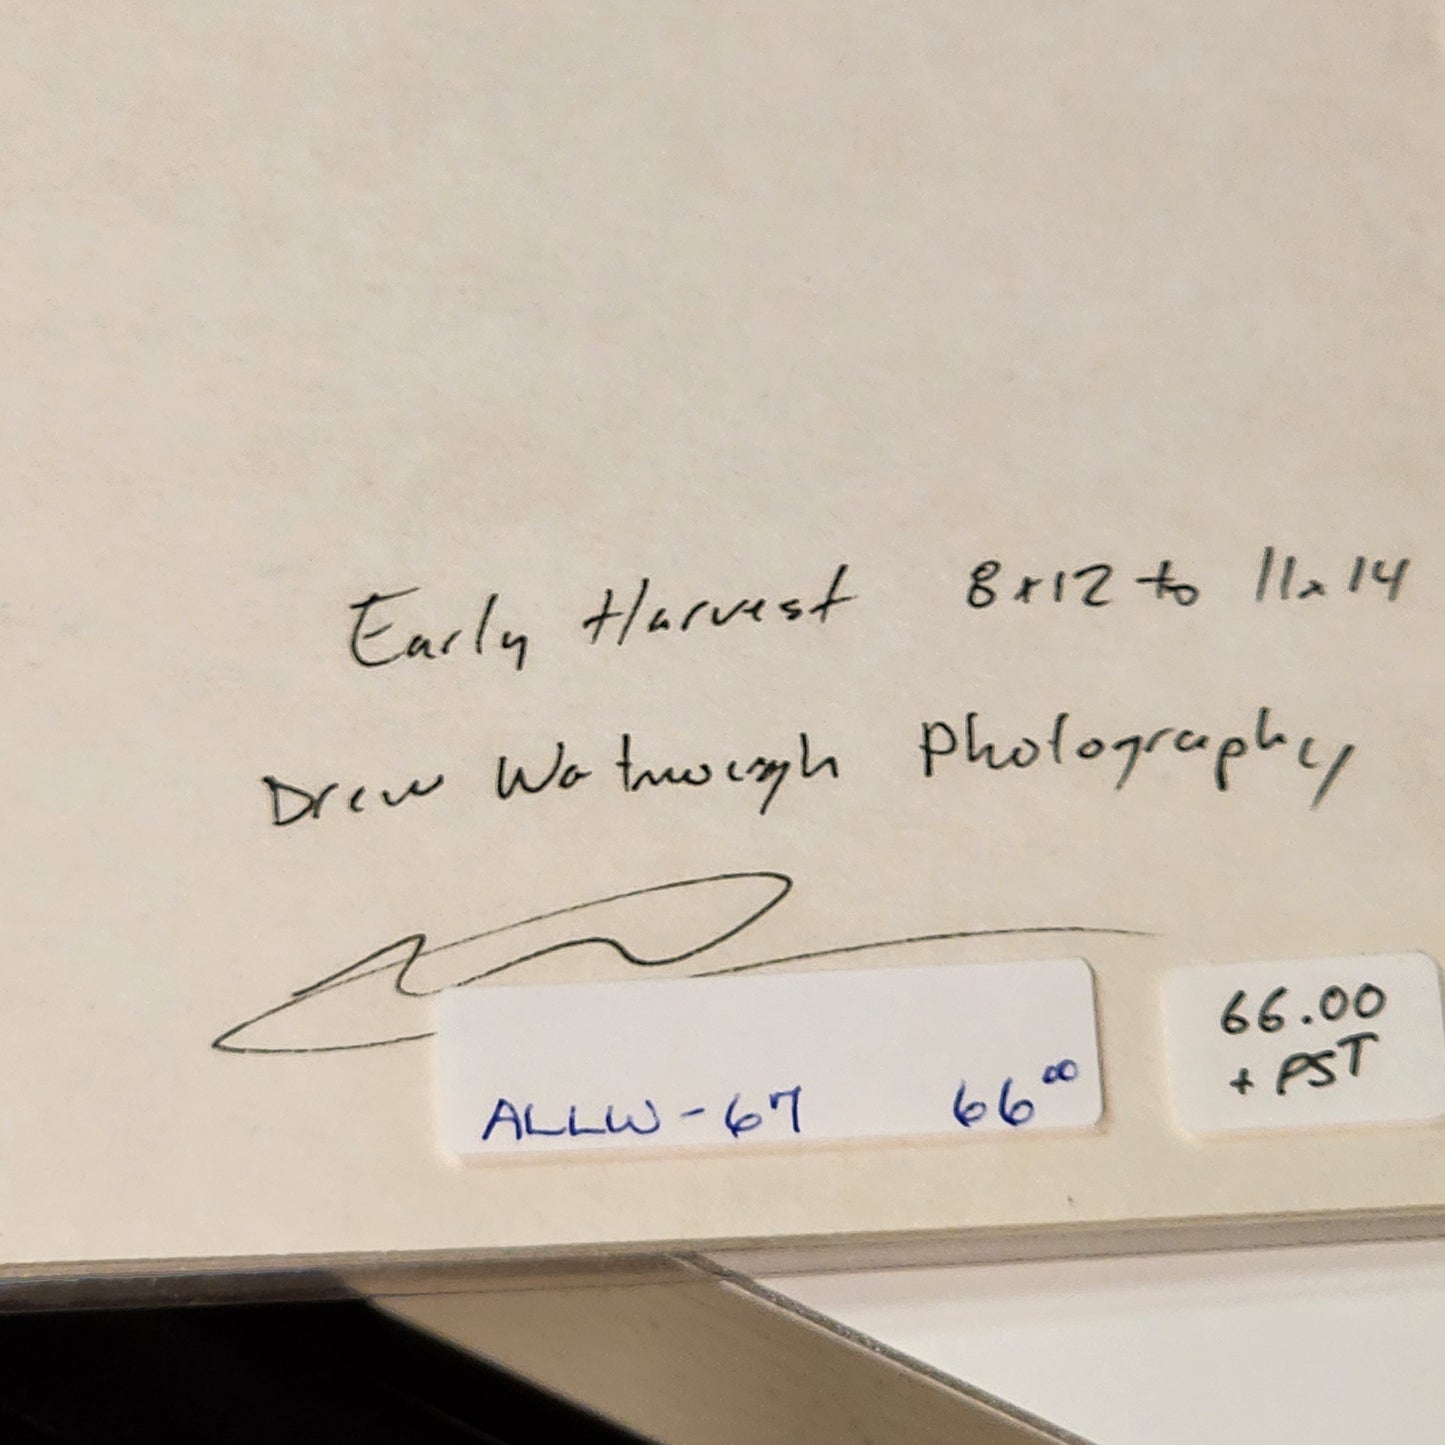 Early Harvest 8x12 to 11x14
Drew Watmough Photography
ALLW-67 66⁰⁰
66.00
+ PST